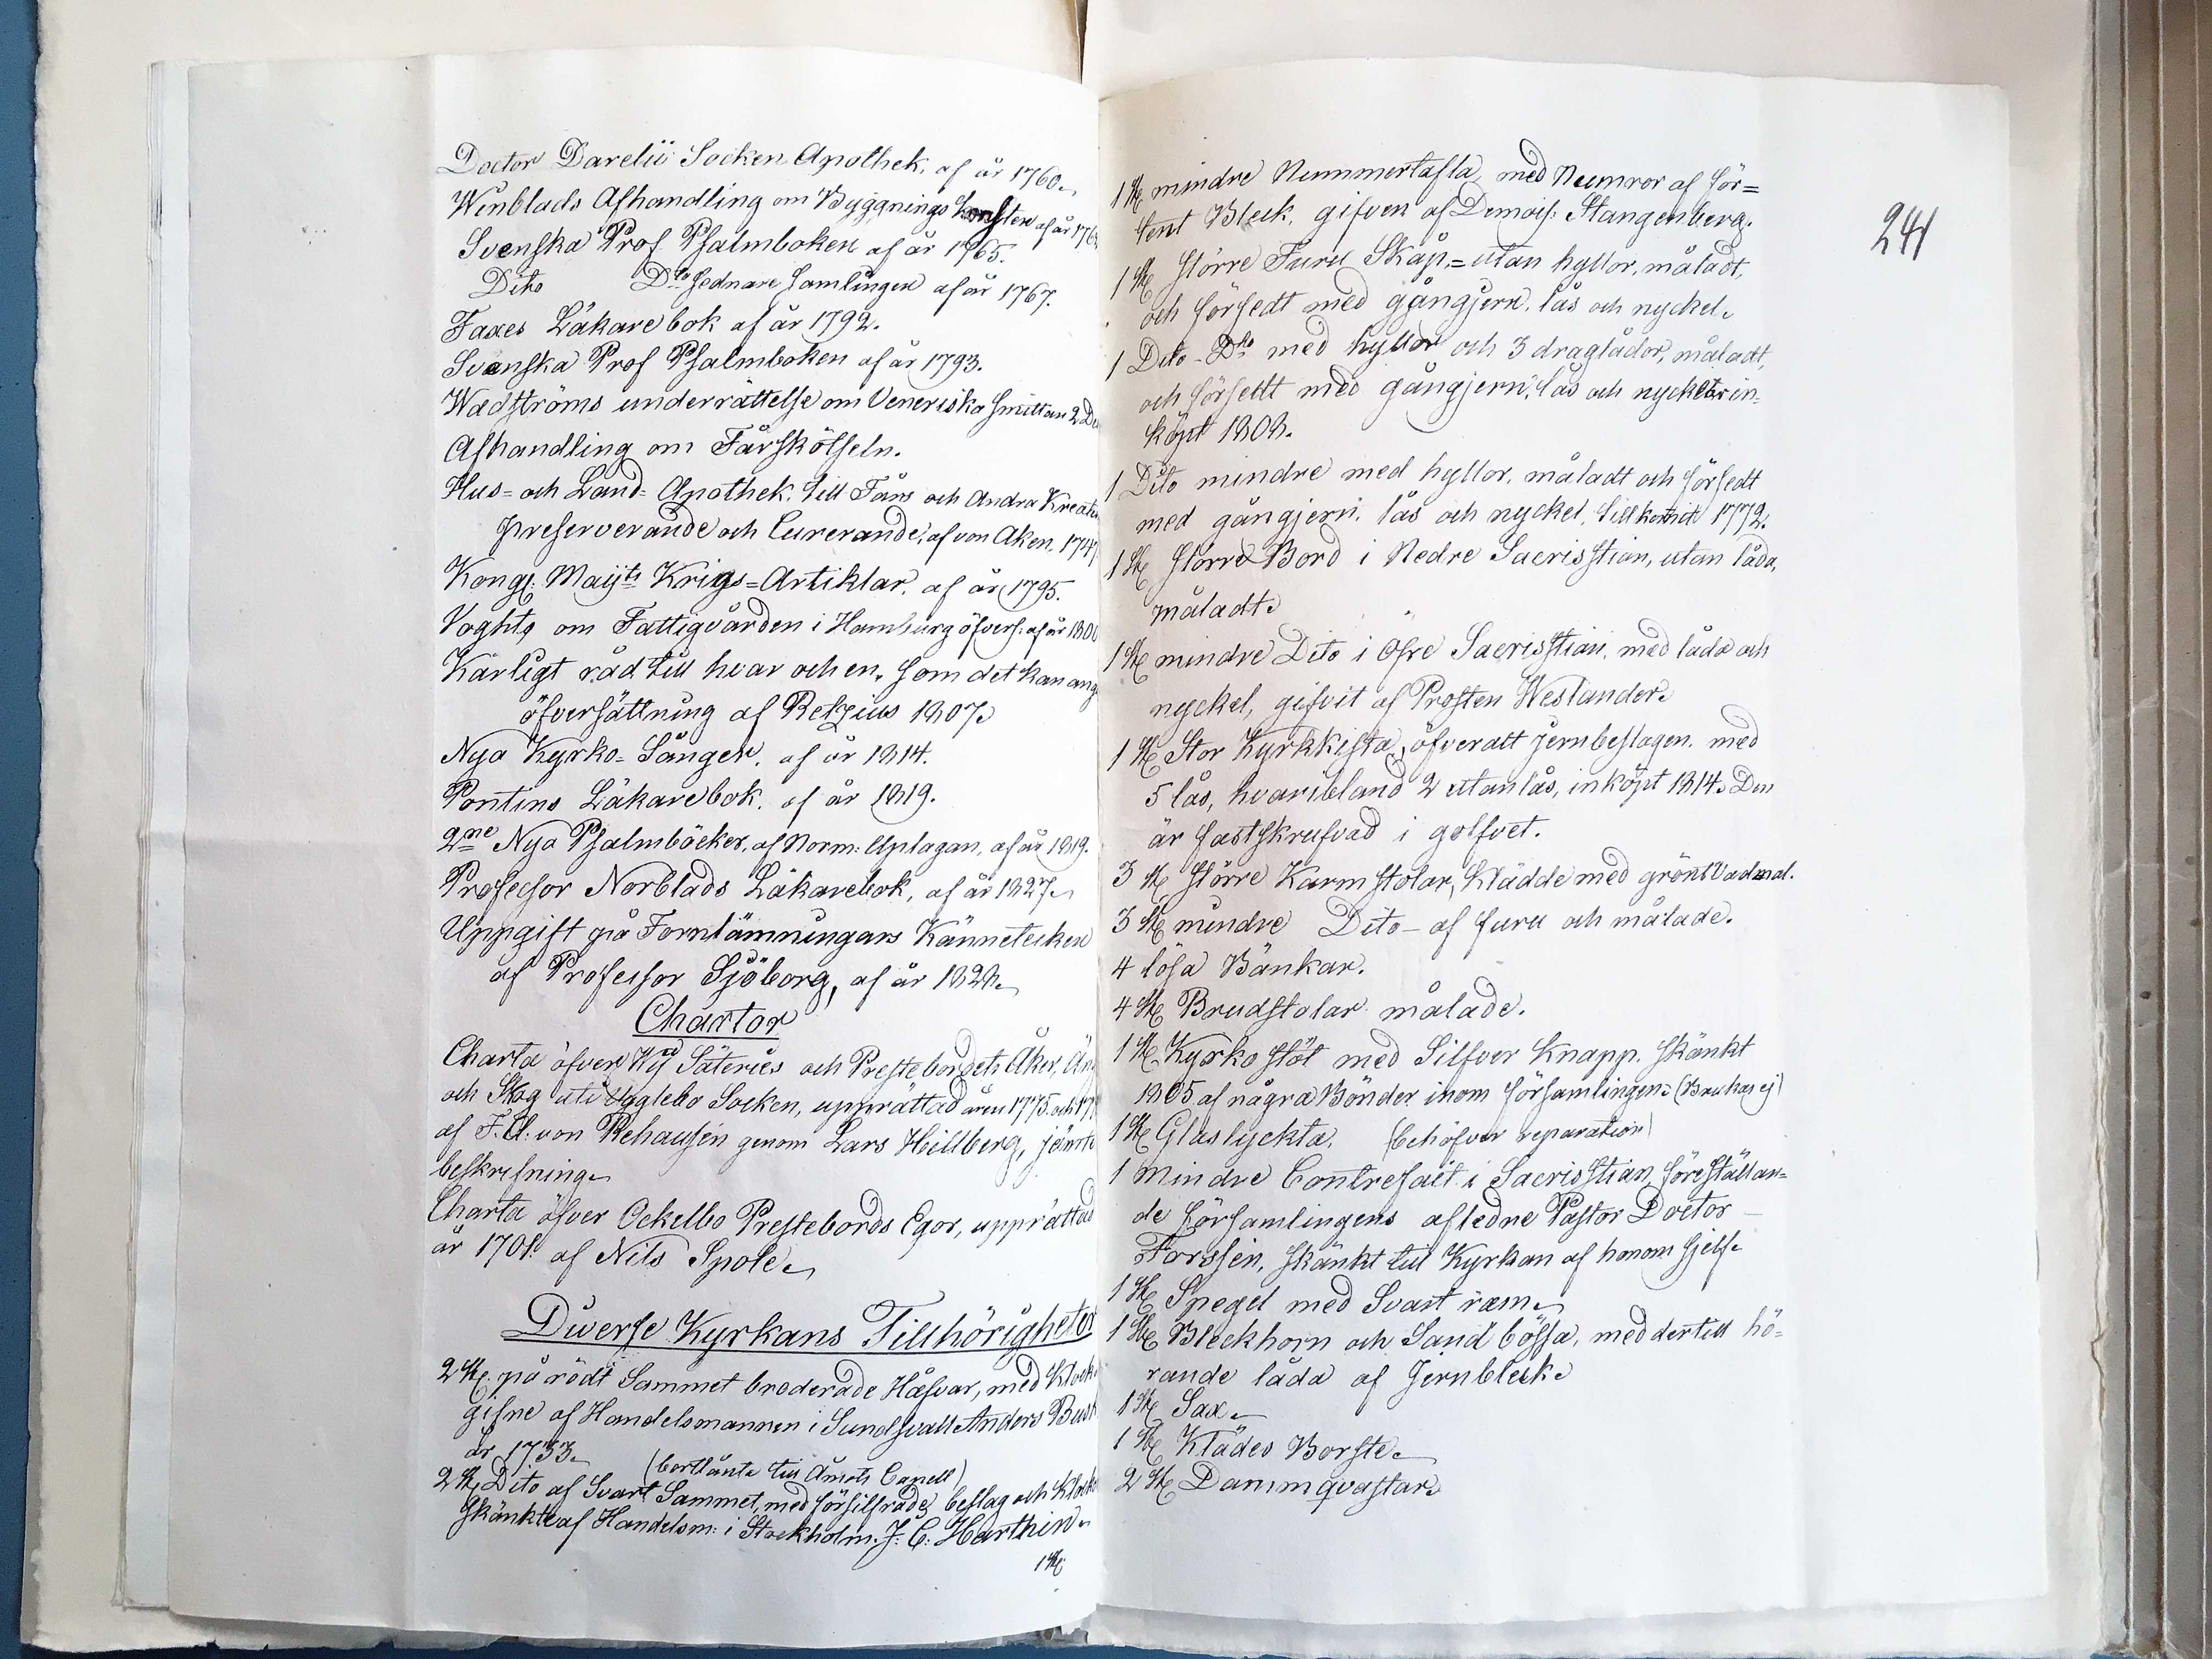 Doctor Darelii Socken Apothek. af år 1760.
Winblads Afhandling om Byggnings Konsten af år 176
Svenska Prof Psalmboken af år 1765.
Dito D:to sednare Samlingen af år 1767.
Faxes Läkarebok af år 1792.
Svenska Prof Psalmboken af år 1793.
Wadströms underrättelse om Veneriska Smittan 2 De
Afhandling om Fårskötseln.
Hus- och Land- Apothek. till Fårs och Andra Kreatu
preserverande och Curerande, af von Aken. 174
Kongl. Maij:ts Krigs=Artiklar. af år 1795.
Voghts om Fattigvården i Hamburg öfvers: af år 180
Kärligt råd till hvar och en, som det kan ang
öfversättning af Retzius 1807.
Nya Kyrko-Sånger. af år 1814.
Pontins Läkarebok. af år 1819.
2ne Nya Psalmböcker, af Norm: Uplagan, af år 1819.
Professor Norblads Läkarebok, af år 1827.
Uppgift på Fornlämningars Kännetecken
af Professor Sjöborg, af år 1828.
Chartor
Charta öfver Wij Säteries och Prestebordets Åker, Äng
och Skog uti Ugglebo Socken, upprättad åren 1775. och 17
af F. U. von Rehausen genom Lars Hillberg, jämte
beskrifning.
Charta öfver Ockelbo Prestebords Egor, upprättad
år 1701. af Nils Spole.
Diverse Kyrkans Tillhörigheter
2 St. på rödt Sammet broderade Håfvar, med Klock
gifne af Handelsmannen i Sundsvall Anders Bus
år 1733.
(bortlånte till Åmots Capell)
2 St. Dito af Svart Sammet, med försilfrade beslag och Klock
Skänkte af Handelsm: i Stockholm. J. C. Harthin.
1 St.
241
1 St. mindre Nummertafla, med Numror af för=
tent Bleck. gifven af Demois: Stangenberg.
1 St. större Furu Skåp,= utan hyllor, måladt,
och försedt med gångjern, lås och nyckel.
1 Dito - D:to med hyllor och 3 draglådor, måladt,
och försedt med gångjern, lås och nycklar in=
köpt 1808.
1 Dito mindre med hyllor, måladt och försedt
med gångjern, lås och nyckel, tillkommit 1772.
1 St. större Bord i Nedre Sacristian, utan låda,
måladt.
1 St. mindre Dito i Öfre Sacristian, med låda och
nyckel, gifvit af Prosten Westander.
1 St. Stor Kyrkkista, öfveralt jernbeslagen. med
5 lås, hvaribland 2 utanlås, inköpt 1814. Den
är fastskrufvad i golfvet.
3 St. större Karmstolar, klädde med grönt Vadmal.
3 St. mindre Dito - af furu och målade.
4 lösa Bänkar.
4 St. Brudstolar målade.
1 St. Kyrkostöt med Silfver Knapp. Skänkt
1805 af några Bönder inom församlingen. (Brukas ej)
1 St. Glaslyckta. (behöfver reparation)
1 mindre Contrefait i Sacristian, föreställan=
de församlingens afledne Pastor Doctor
Forssén, skänkt till Kyrkan af honom sjelf.
1 St. Spegel med Svart ram.
1 St. Bleckhorn och Sand bössa, med dertill hö=
rande låda af Jernbleck.
1 St. Sax.
1 St. Klädes Borste.
2 St. Dammqvastar.